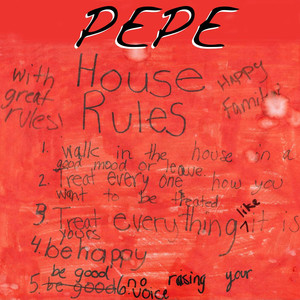 PEPE
with great rules!
House Rules
Happy Families
1. walk in the house in a
good mood or leave
2. Treat every one how you
want to be treated
3 Treat everything like it is
yours
4. be happy
be good
5 be good 6. no raising your
voice